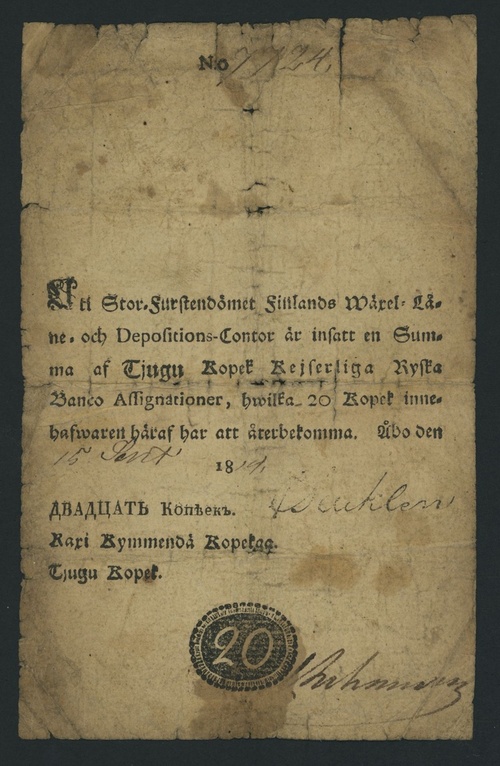 No 7724.
Uti Stor-Furstendömet Finlands Wäxel- Lå-
ne- och Depositions-Contor är insatt en Sum-
ma af Tjugu Kopek Kejserliga Ryska
Banco Assignationer, hwilka 20 Kopek inne-
hafwaren häraf har att återbekomma. Åbo den
15 Sept 18
ДВАДЦАТЬ Копѣекъ.
Kaxi Kymmendä Kopekaa.
Tjugu Kopek.
20